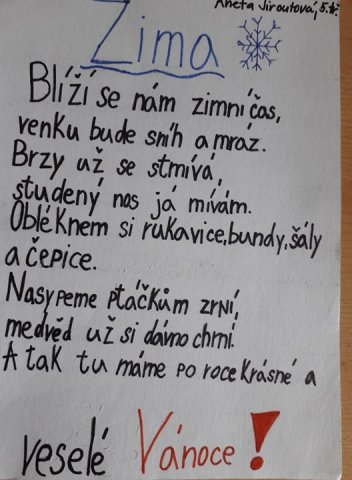 Aneta Jiroutová, 5.tř.
Zima
Blíží se nám zimní čas,
venku bude sníh a mráz.
Brzy už se stmívá,
studený nos já mívám.
Obléknem si rukavice, bundy, šály
a čepice.
Nasypeme ptáčkům zrní,
medvěd už si dávno chrní.
A tak tu máme po roce krásné a
veselé Vánoce!